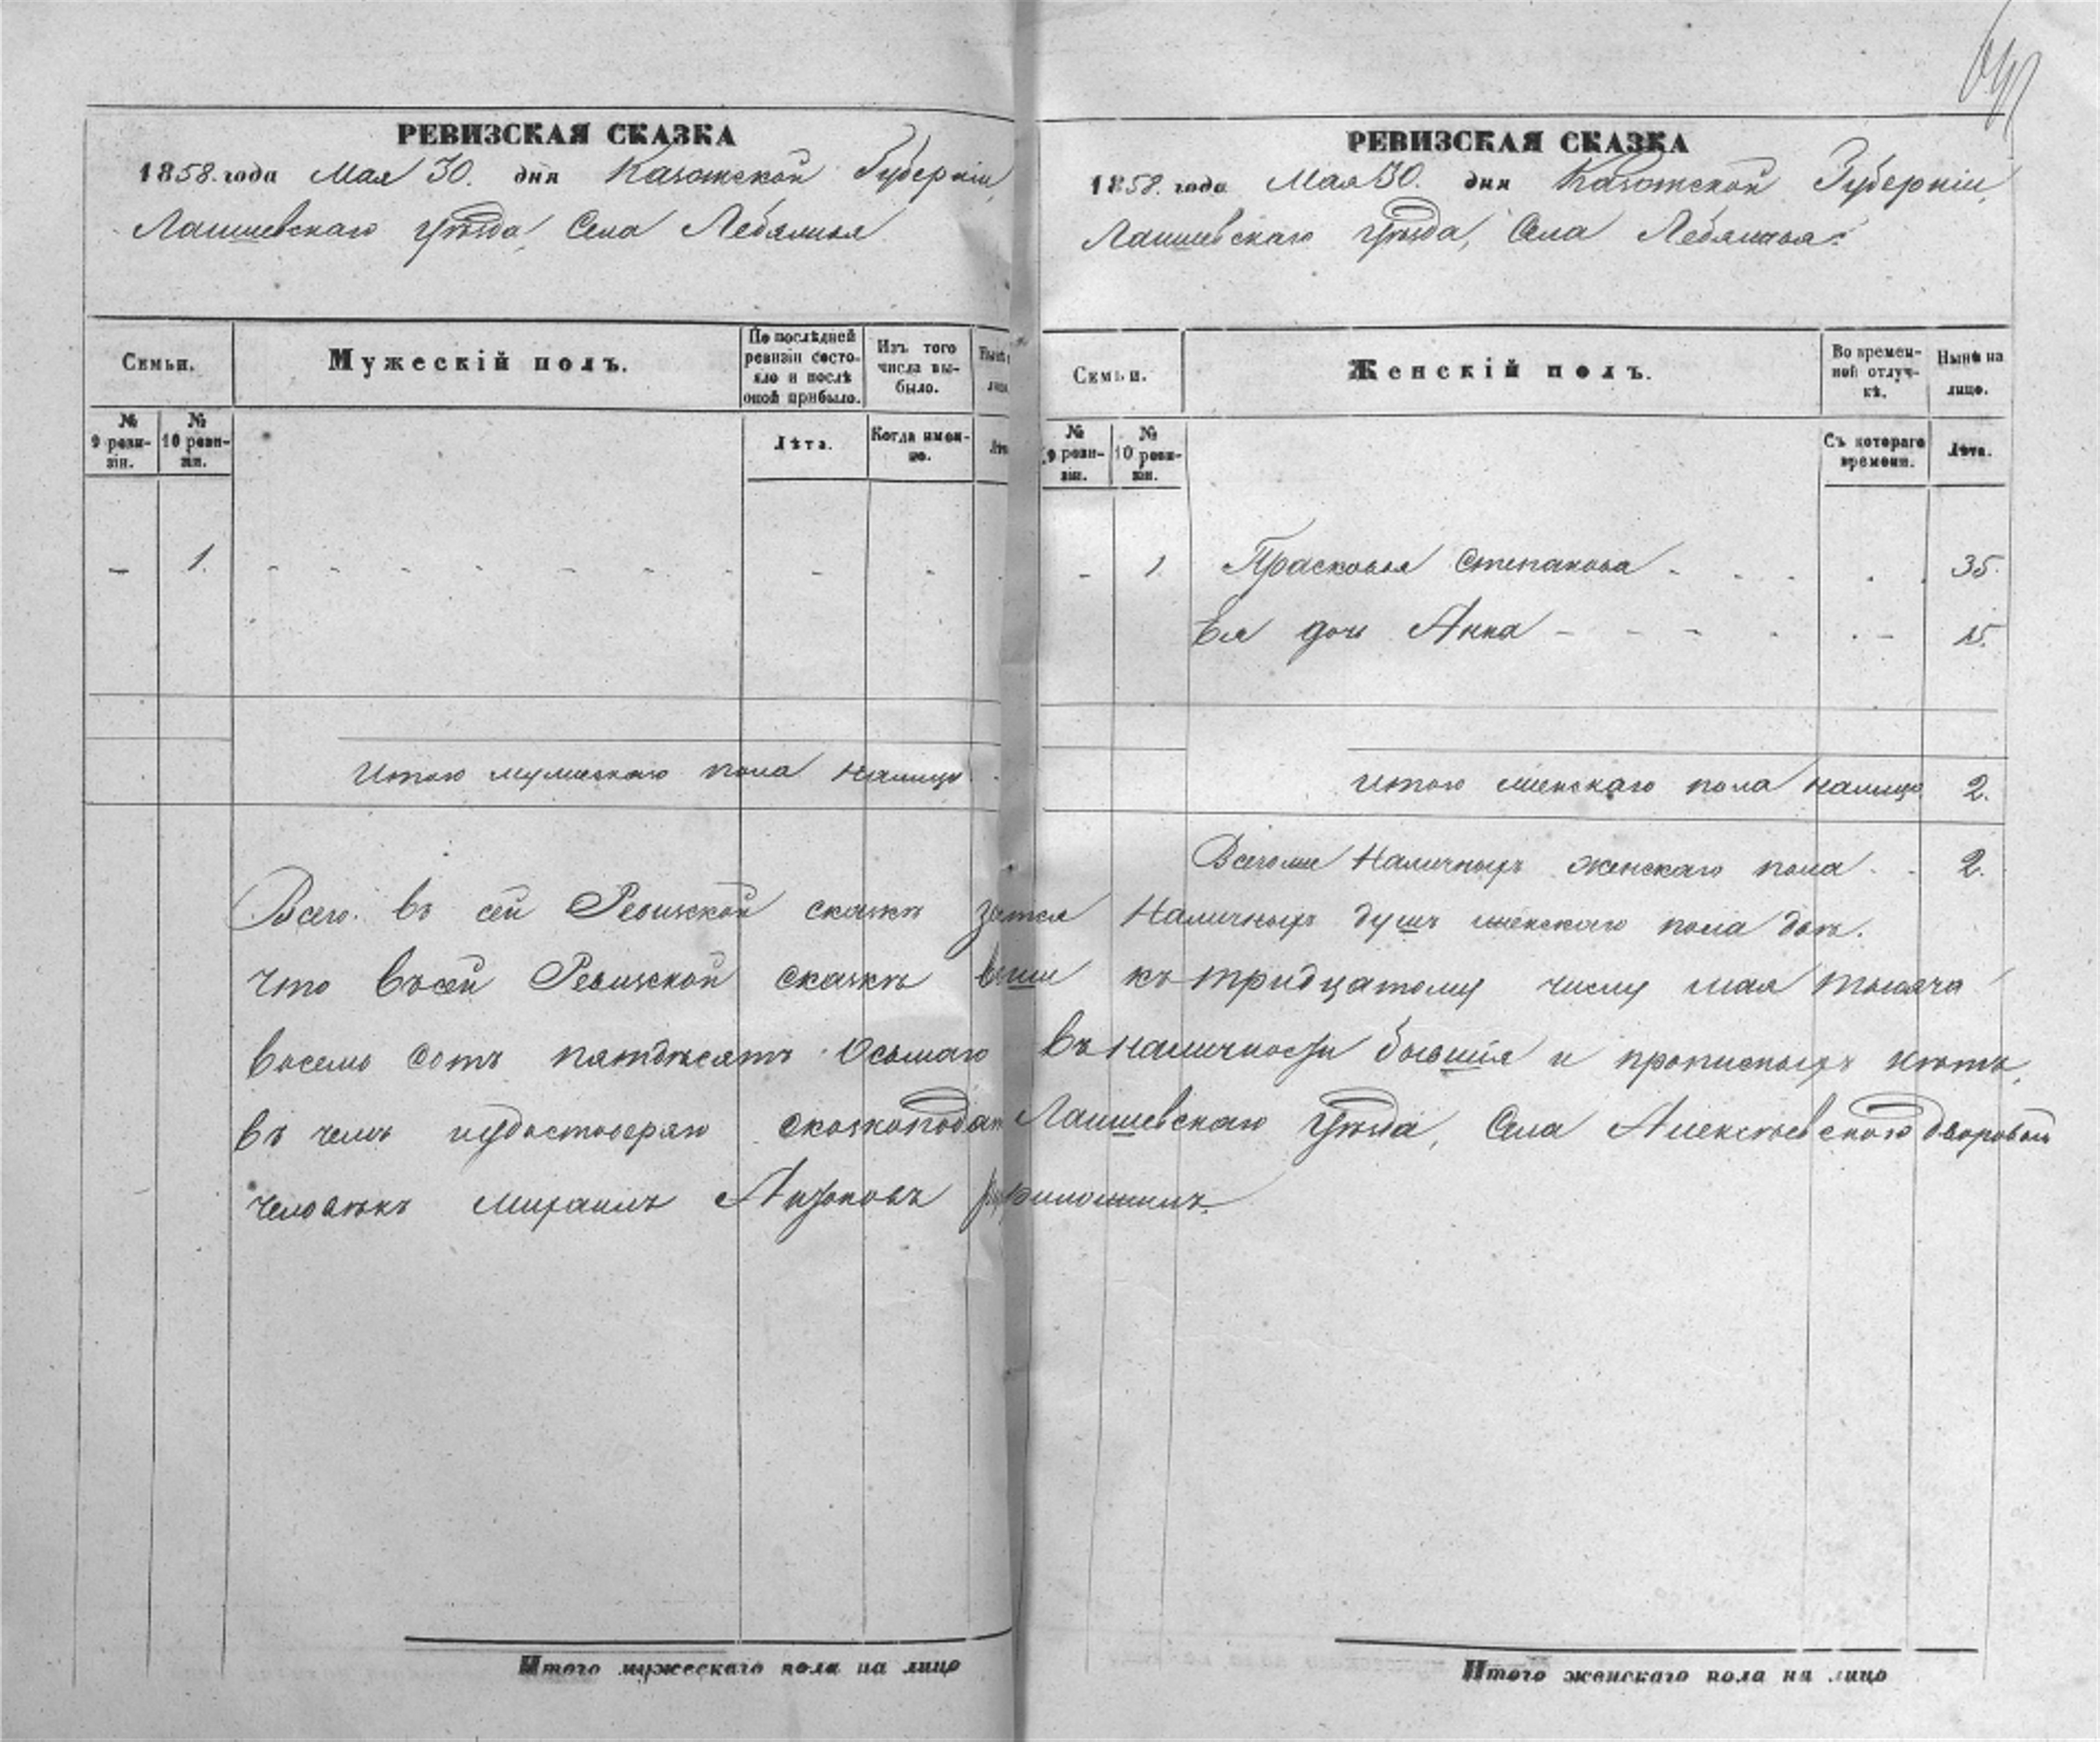 РЕВИЗСКАЯ СКАЗКА
1858. года Мая 30. дня Казанской Губерніи,
Лаишевскаго уѣзда, Села Лебяжья
Семьи.
Мужескій полъ.
По послѣдней ревизіи состояло и послѣ оной прибыло.
Изъ того числа выбыло.
№ 9 ревизіи.
№ 10 ревизіи.
Лѣта.
Когда именно.
— 1. - - - - - - - - -
Итого мужескаго пола налицо
РЕВИЗСКАЯ СКАЗКА
1858. года Мая 30. дня Казанской Губерніи,
Лаишевскаго уѣзда, Села Лебяжья.
Семьи.
Женскій полъ.
Во временной отлучкѣ.
Нынѣ на лицо.
№ 9 ревизіи.
№ 10 ревизіи.
Съ котораго времени.
Лѣта.
- 1 Прасковья Степанова - - - . . 35.
Ея дочь Анна - - - - . - 15.
Итого женскаго пола налицо 2.
Всего же наличныхъ женскаго пола - - 2.
Всего въ сей Ревизской сказкѣ наличныхъ душъ женскаго пола двѣ.
Что въ сей Ревизской сказкѣ всѣ къ тридцатому числу мая тысяча
восемь сотъ пятдесятъ осьмаго въ наличности бывшія и прописныхъ нѣтъ,
въ чемъ и удостоверяю Лаишевскаго уѣзда, Села Алексѣевскаго дворовый
человѣкъ Михаилъ приложилъ.
Итого мужескаго пола на лицо
Итого женскаго пола на лицо